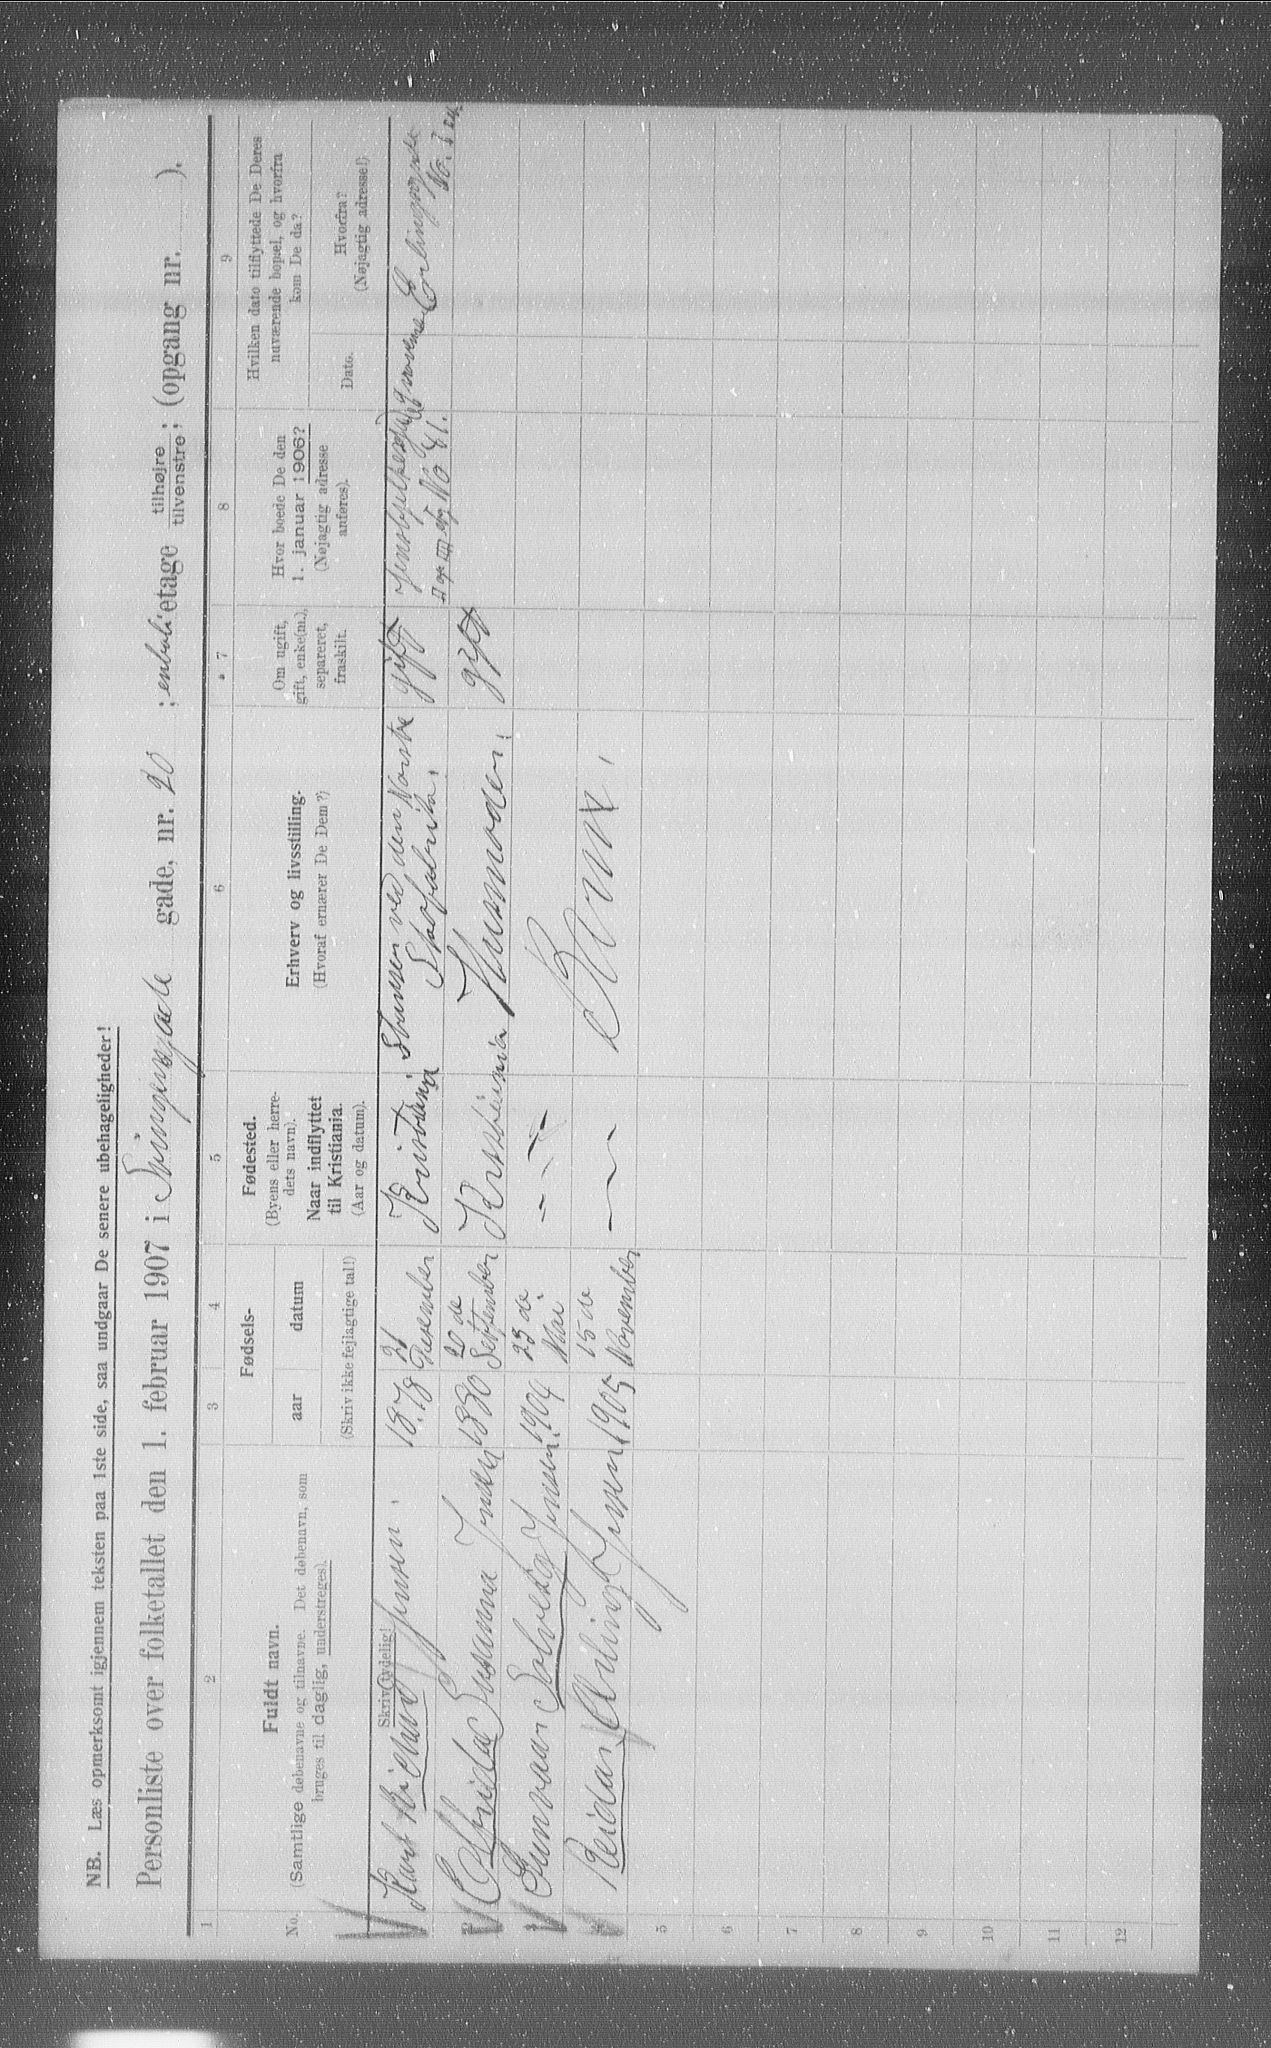 NB. Læs opmerksomt igjennem teksten paa 1ste side, saa undgaar De senere ubehageligheder!
Personliste over folketallet den 1. februar 1907 i gade, nr. 20 ; etage tilhøjre tilvenstre; (opgang nr. ).
1 2 3 4 5 6 7 8 9
No.
Fuldt navn.
(Samtlige døbenavne og tilnavne. Det døbenavn, som
bruges til daglig, understreges).
Skriv tydelig!
Fødsels-
aar datum
(Skriv ikke fejlagtige tal!)
Fødested.
(Byens eller herre-
dets navn).
Naar indflyttet
til Kristiania.
(Aar og datum).
Erhverv og livsstilling.
(Hvoraf ernærer De Dem?)
Om ugift,
gift, enke(m.),
separeret,
fraskilt.
Hvor boede De den
1. januar 1906?
(Nøjagtig adresse
anføres).
Hvilken dato tilflyttede De Deres
nuværende bopæl, og hvorfra
kom De da?
Dato.
Hvorfra?
(Nøjagtig adresse!)
Jensen. 1878 21 December Kristiania ved den Norske gift
No 41.
2 Susanna Jensen 1880 20de September Kristiania Husmoder. gift
3 Gunvaar Solveig Jensen. 1904 23de Mai — " —
4 Reidar Jensen 1905 15de November — — Barn.
5
6
7
8
9
10
11
12